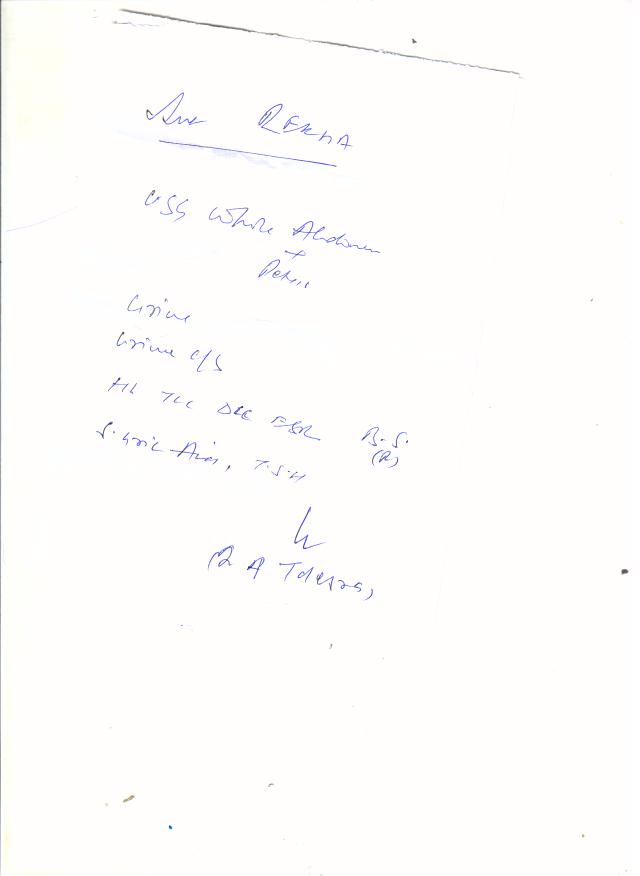 REKHA
USG Whole Abdomen
+
Pelvis
Urine
Urine C/S
Hb TLC DLC ESR B.S.
(R)
S. Uric Acid, T.S.H